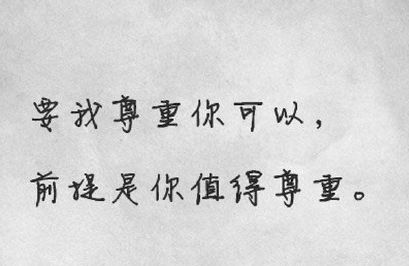 要我尊重你可以，
前提是你值得尊重。